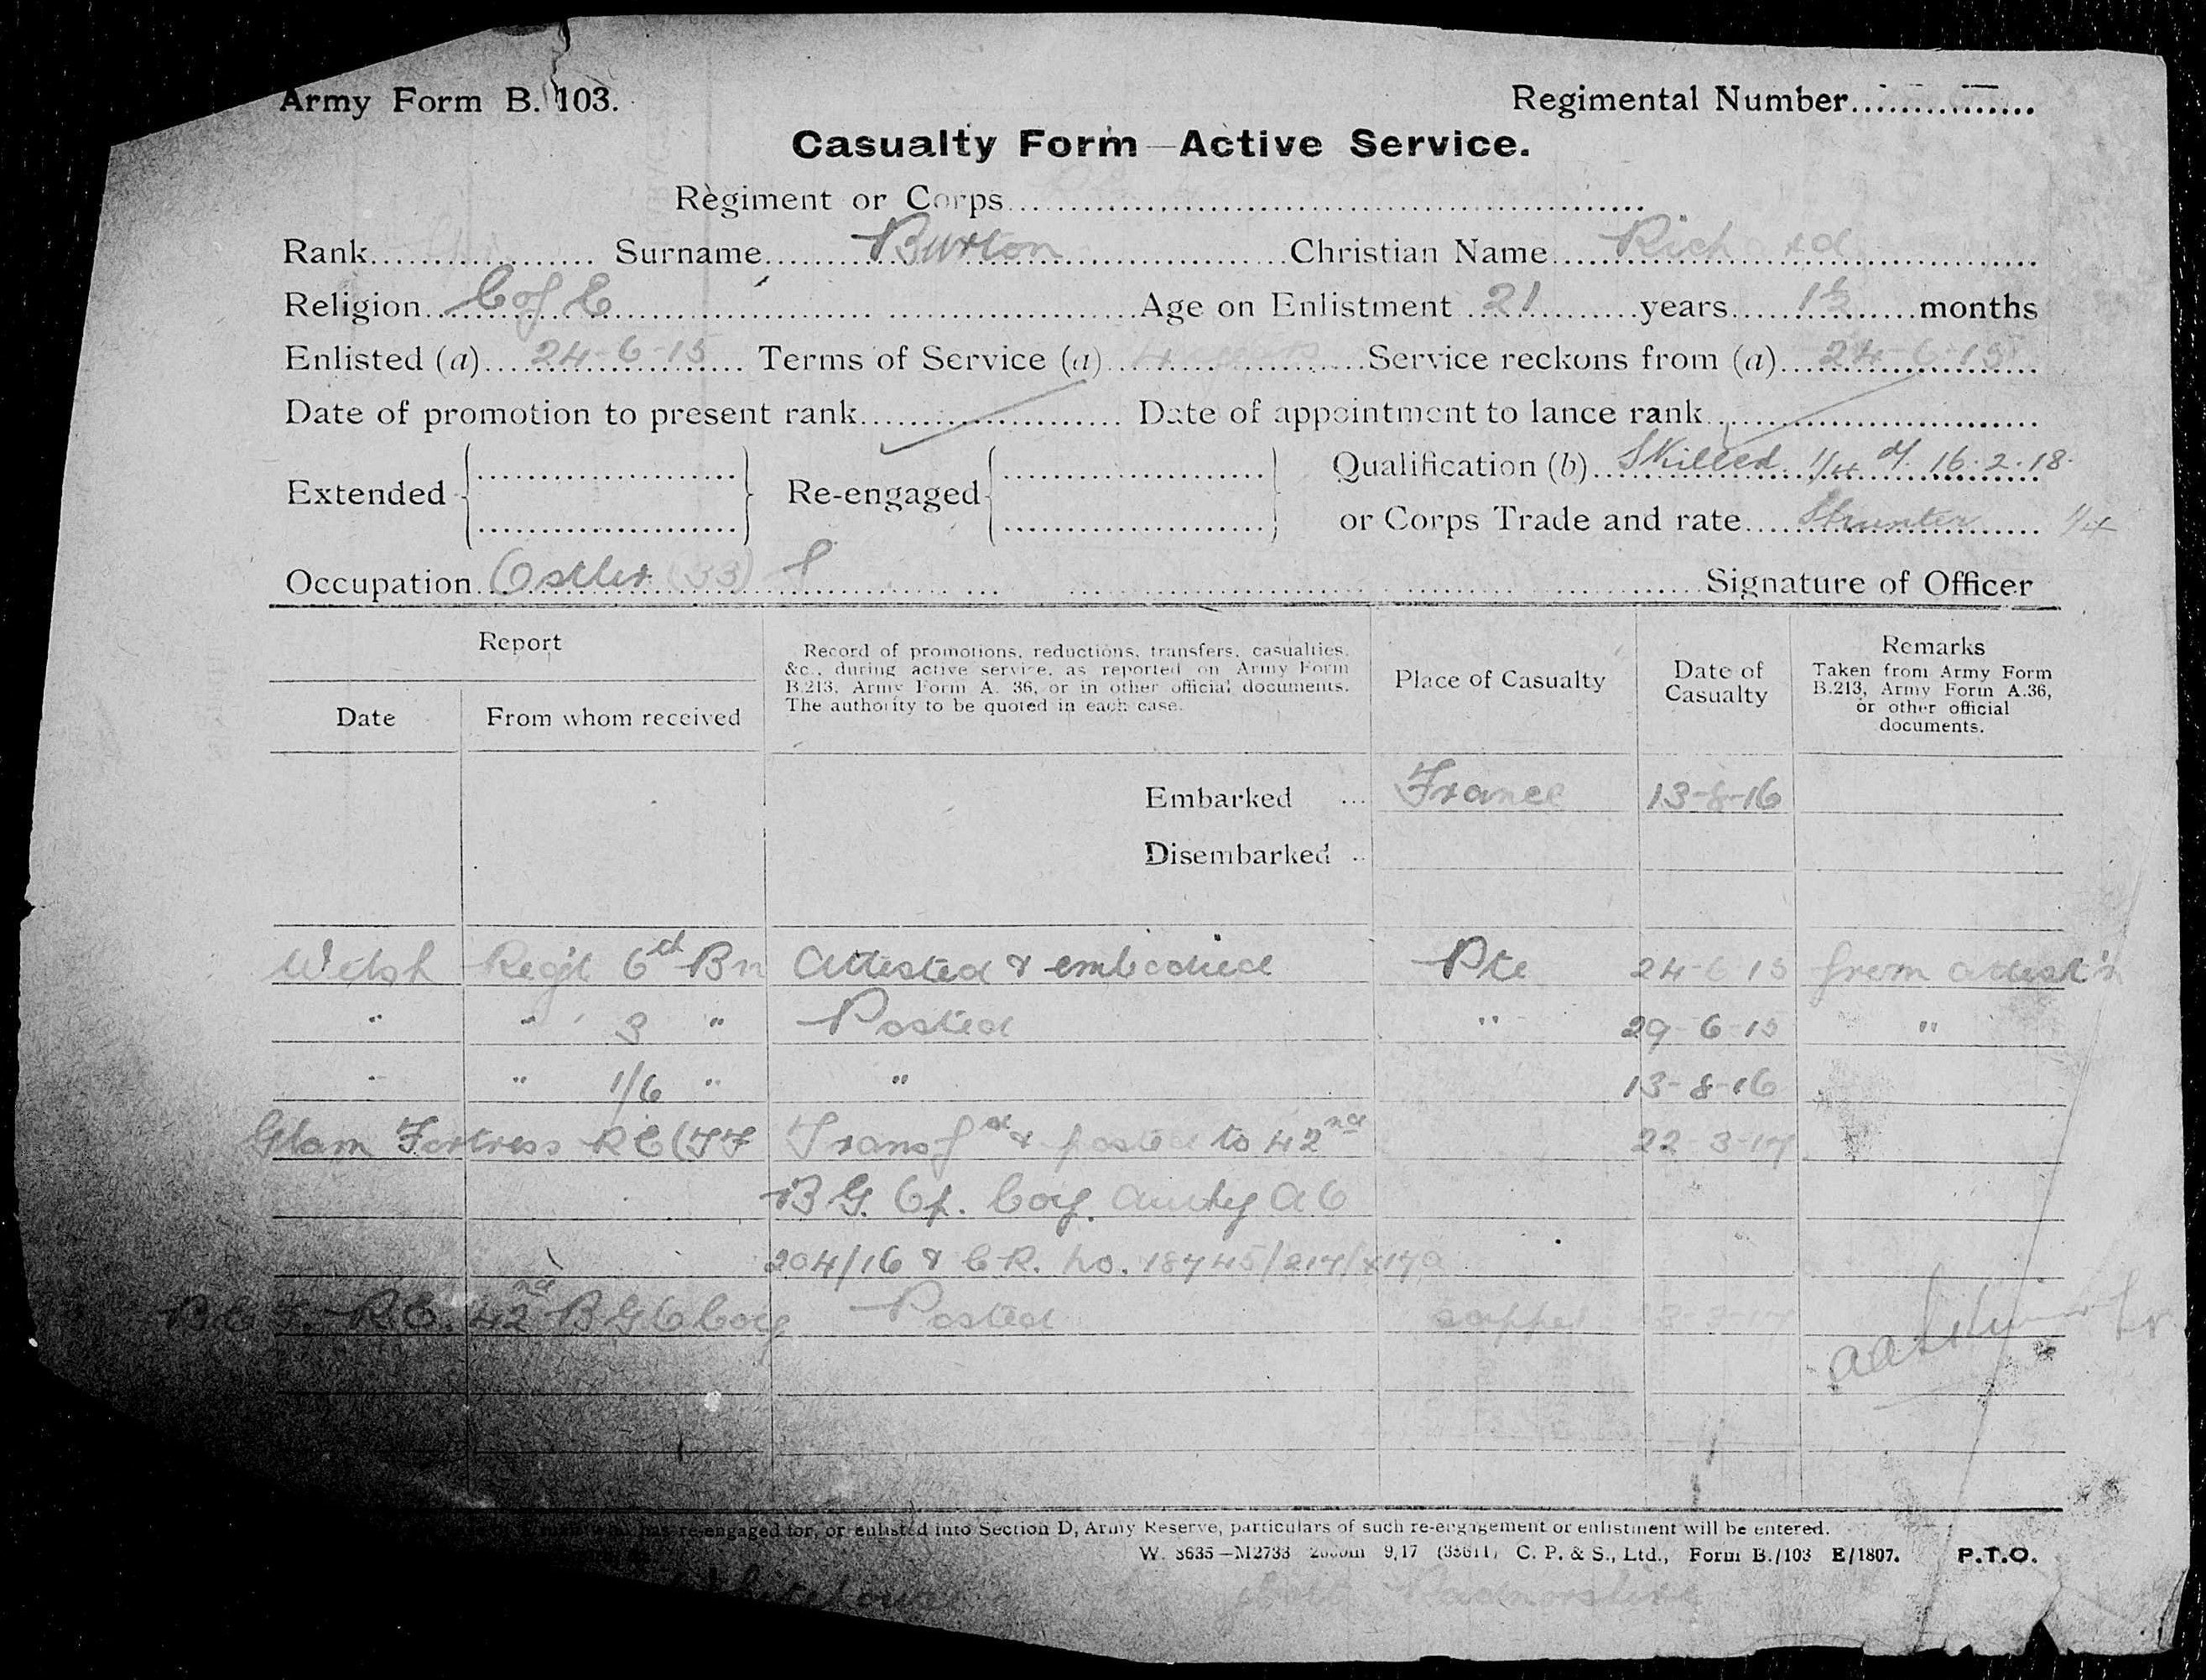 Army Form B. 103.
Regimental Number
Casualty Form—Active Service.
Regiment or Corps
Rank Surname Burton Christian Name Richard
Religion C of E Age on Enlistment 21 years 1½ months
Enlisted (a) 24-6-15 Terms of Service (a) Service reckons from (a) 24-6-15
Date of promotion to present rank Date of appointment to lance rank
Extended Re-engaged Qualification (b) Skilled 16.2.18.
or Corps Trade and rate Shunter
Occupation Ostler (33) Signature of Officer
Report
Record of promotions, reductions, transfers, casualties, &c., during active service, as reported on Army Form B.213, Army Form A. 36, or in other official documents. The authority to be quoted in each case.
Place of Casualty
Date of Casualty
Remarks
Taken from Army Form B.213, Army Form A.36, or other official documents.
Date From whom received
Embarked ... France 13-8-16
Disembarked ..
Welsh Reg't 6th Bn Attested & embodied Pte 24-6-15 from attest'n
" " 3 " Posted " 29-6-15 "
" " 1/6 " " 13-8-16
Glam Fortress RE (TF Transfd & posted to 42nd 22-3-17
B G. Cy. Authy AC
204/16 & CR. No.
R.E. 42nd Posted sapper
has re-engaged for, or enlisted into Section D, Army Reserve, particulars of such re-engagement or enlistment will be entered.
W. 8635—M2733 9/17 C. P. & S., Ltd., Form B./103 E/1807. P.T.O.
Radnorshire